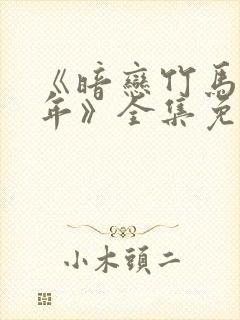 《暗戀竹馬
年》全集免
小木頭二